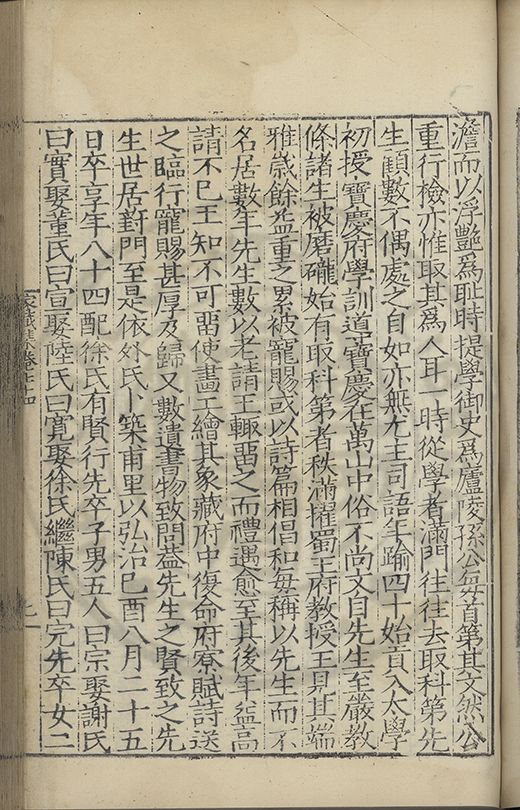 澹而以浮艷爲耻時提學御史爲廬陵孫公每首第其文然公
重行檢亦惟取其爲人耳一時從學者滿門往往去取科第先
生顧數不偶處之自如亦無尤主司語年踰四十始貢入太學
初授寶慶府學訓導寶慶在萬山中俗不尚文自先生至嚴教
條諸生被磨礲始有取科第者秩滿擢蜀王府教授王見其端
雅歲餘益重之累被寵賜或以詩篇相倡和每稱以先生而不
名居數年先生數以老請王輙畱之而禮遇愈至其後年益高
請不巳王知不可畱使畫工繪其象藏府中復命府寮賦詩送
之臨行寵賜甚厚及歸又數遺書物致問葢先生之賢致之先
生世居葑門至是依外氏卜築甫里以弘治巳酉八月二十五
日卒享年八十四配徐氏有賢行先卒子男五人曰宗娶謝氏
曰實娶董氏曰宣娶陸氏曰寛娶徐氏繼陳氏曰完先卒女二
家藏集卷七十四